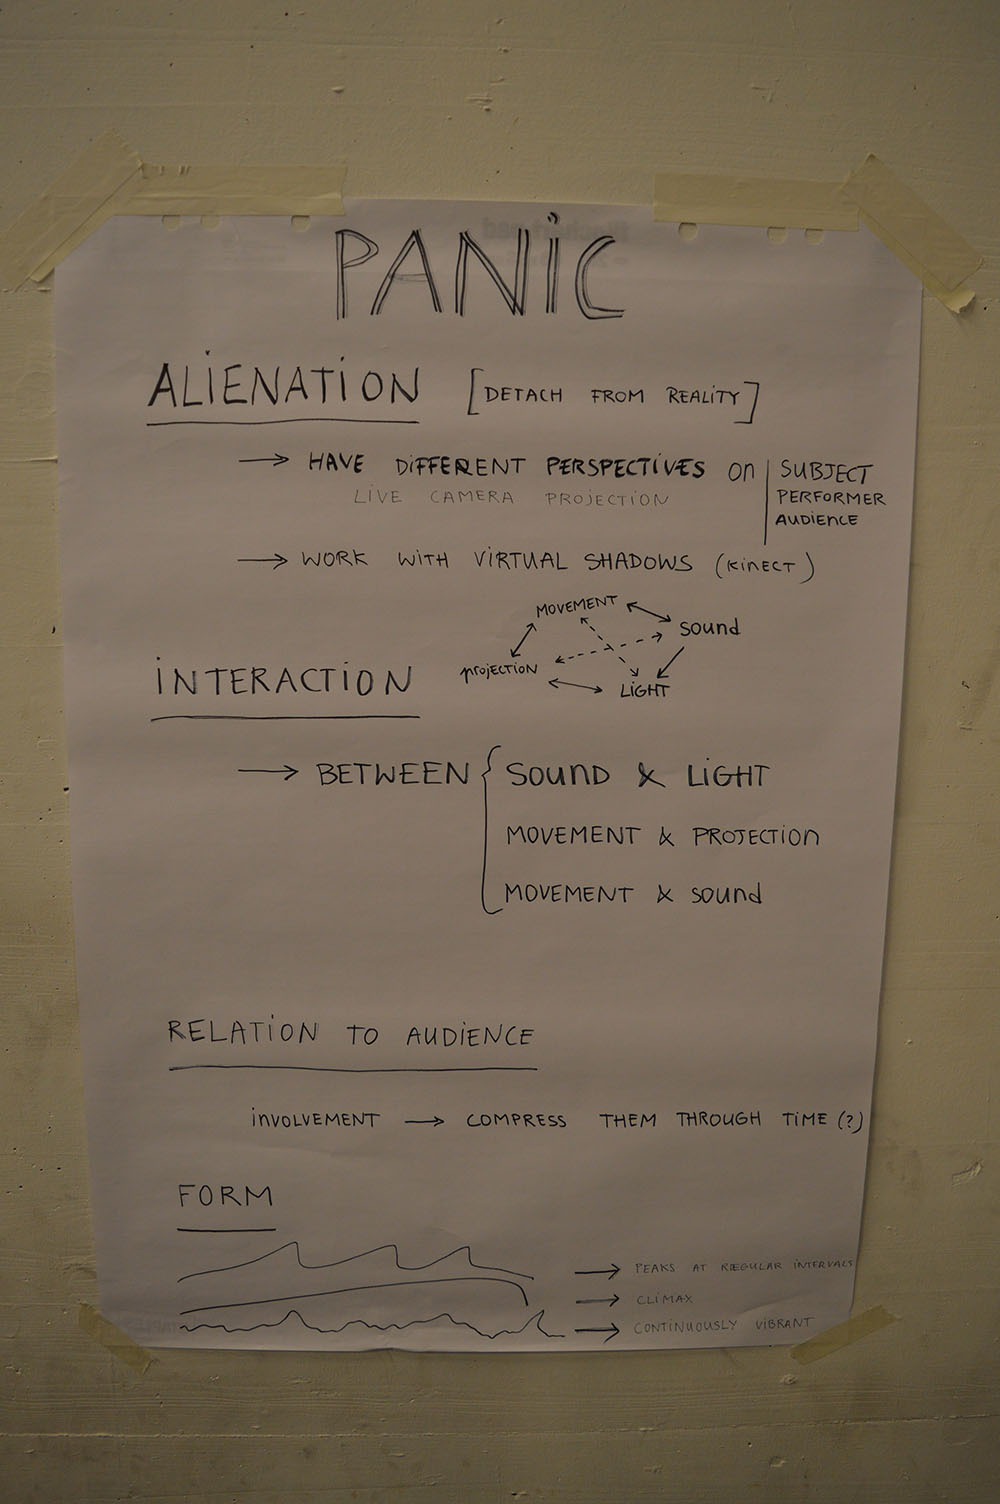 PANIC
ALIENATION [DETACH FROM REALITY]
→ HAVE DIFFERENT PERSPECTIVES ON | SUBJECT
LIVE CAMERA PROJECTION
PERFORMER
AUDIENCE
→ WORK WITH VIRTUAL SHADOWS (KINECT)
MOVEMENT
SOUND
PROJECTION
LIGHT
INTERACTION
→ BETWEEN { SOUND & LIGHT
MOVEMENT & PROJECTION
MOVEMENT & SOUND
RELATION TO AUDIENCE
INVOLVEMENT → COMPRESS THEM THROUGH TIME (?)
FORM
→ PEAKS AT REGULAR INTERVALS
→ CLIMAX
→ CONTINUOUSLY VIBRANT